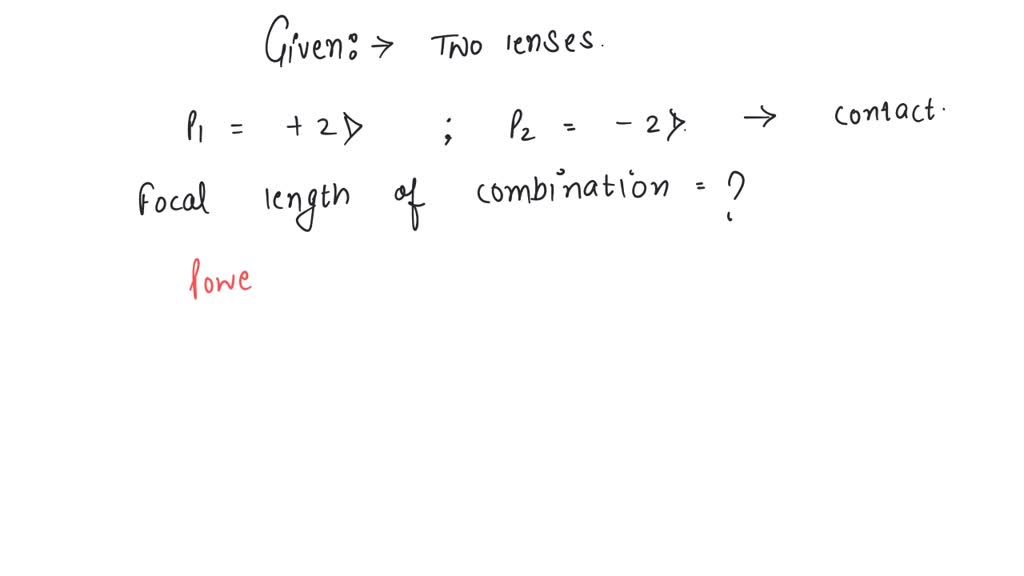 Given:→ Two lenses.
P1 = +2D ; P2 = -2D. → contact.
Focal length of combination = ?
Powe